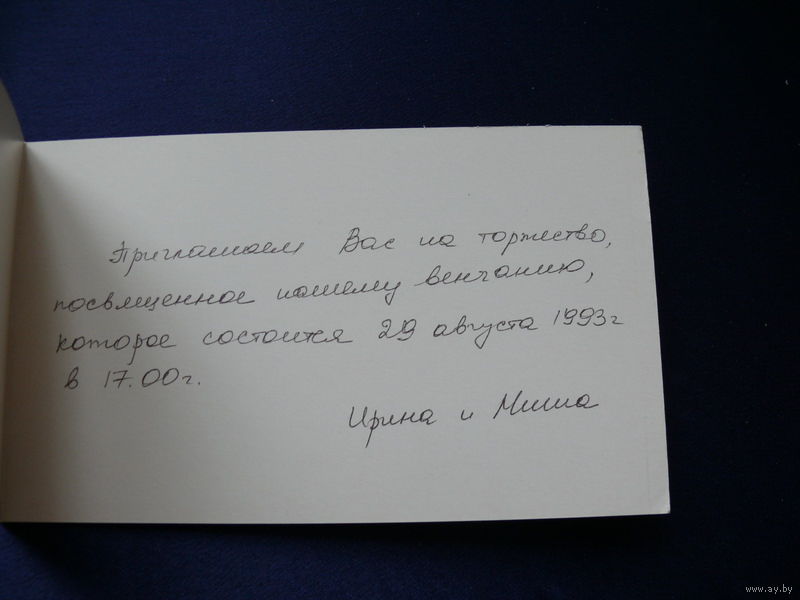 Приглашаем Вас на торжество,
посвященное нашему венчанию,
которое состоится 29 августа 1993г
в 17.00г.
Ирина и Миша
www.ay.by